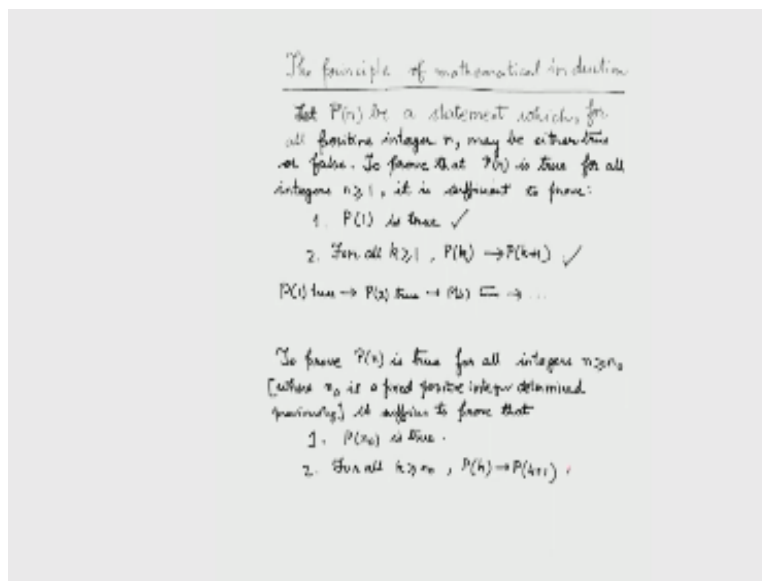 The principle of mathematical induction
Let P(n) be a statement which, for
all positive integer n, may be either true
or false. To prove that P(n) is true for all
integers n≥1, it is sufficient to prove:
1. P(1) is true ✓
2. For all k≥1, P(k) → P(k+1) ✓
P(1) true → P(2) true → P(3) → ...
To prove P(n) is true for all integers n≥n₀
[where n₀ is a fixed positive integer determined
previously] it suffices to prove that
1. P(n₀) is true.
2. For all k≥n₀, P(k) → P(k+1)